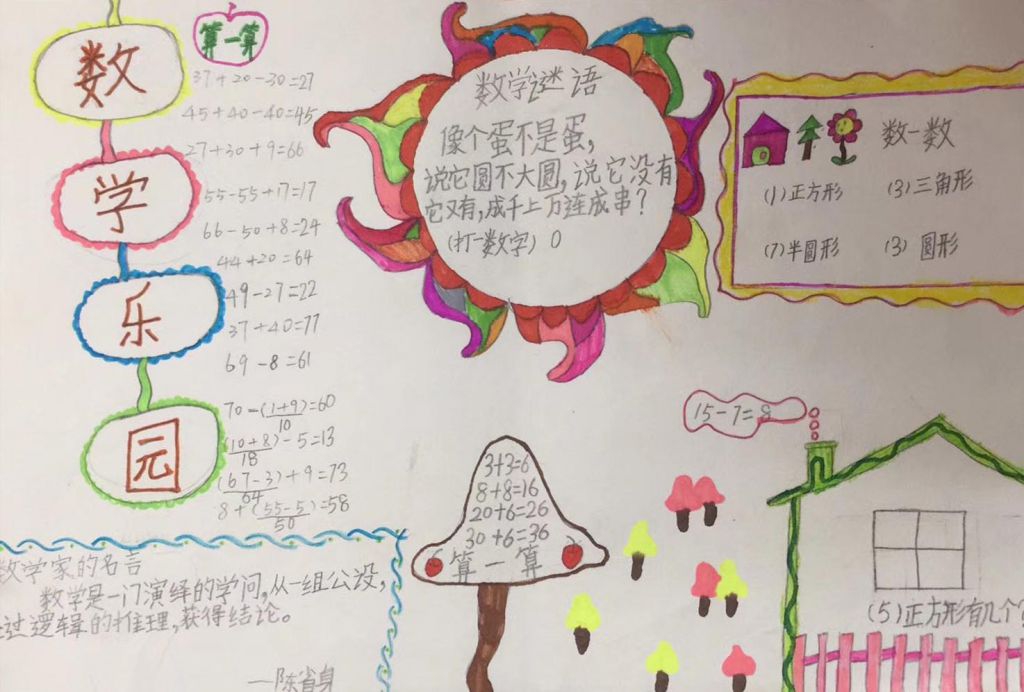 数学乐园
算一算
37+20-30=27
45+40-40=45
27+30+9=66
55-55+17=17
66-50+8=24
44+20=64
49-27=22
37+40=77
69-8=61
70-(1+9)=60
10
(10+8)-5=13
18
(67-3)+9=73
64
8+(55-5)=58
50
数学谜语
像个蛋不是蛋,
说它圆不大圆,说它没有
它又有,成千上万连成串?
(打一数字) 0
数一数
(1)正方形 (3)三角形
(7)半圆形 (3) 圆形
15-7=8
3+3=6
8+8=16
20+6=26
30+6=36
算一算
(5)正方形有几个?
数学家的名言
数学是一门演绎的学问,从一组公设,
过逻辑的推理,获得结论。
—陈省身